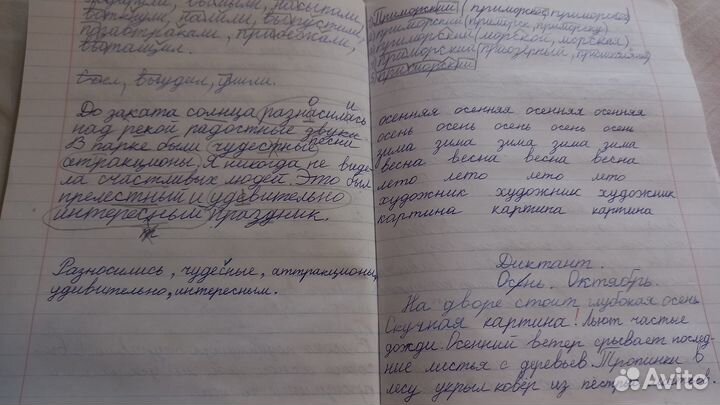 вымыли, насыпали,
воткнули, налили, выпустили,
позавтракали, приезжали,
вытащил.
Воел, выудил, ушли.
До заката солнца разнасилась
о и
над рекой радостные звуки
песни
В парке были чудестные
атракционы. Я никогда не виде-
ла счастливых людей. Это был
прелестный и удевительно
интерестный праздник.
Разносились, чудесные, аттракционы,
удивительно, интересным.
Приморский (приморское, приморского)
приморский (приморск, приморску)
приморский (морской, морская)
приморский (приозёрный,
приморский
осенняя осенняя осенняя осенняя
осень осень осень осень осень
зима зима зима зима зима
весна весна весна весна
лето лето лето лето
художник художник художник
картина картина картина
Диктант.
Осень. Октябрь.
На дворе стоит глубокая осень
Скучная картина! Льют частые
дожди. Осенний ветер срывает послед-
ние листья с деревьев. Тропинки в
лесу укрыл ковёр из пёстрых
Avito